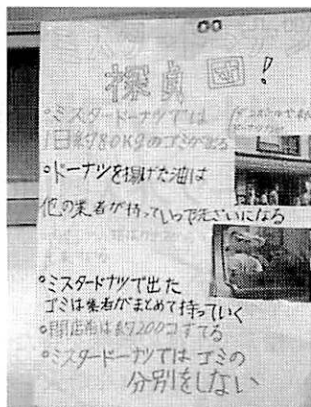 探貞団!
○ミスタードーナツでは
1日約80KGのゴミが出る
○ドーナツを揚げた油は
他の業者が持っていって洗ざいになる
○ミスタードナツで出た
ゴミは業者がまとめて持っていく
○閉店后は約200コすてる
○ミスタードーナツではゴミの
分別をしない